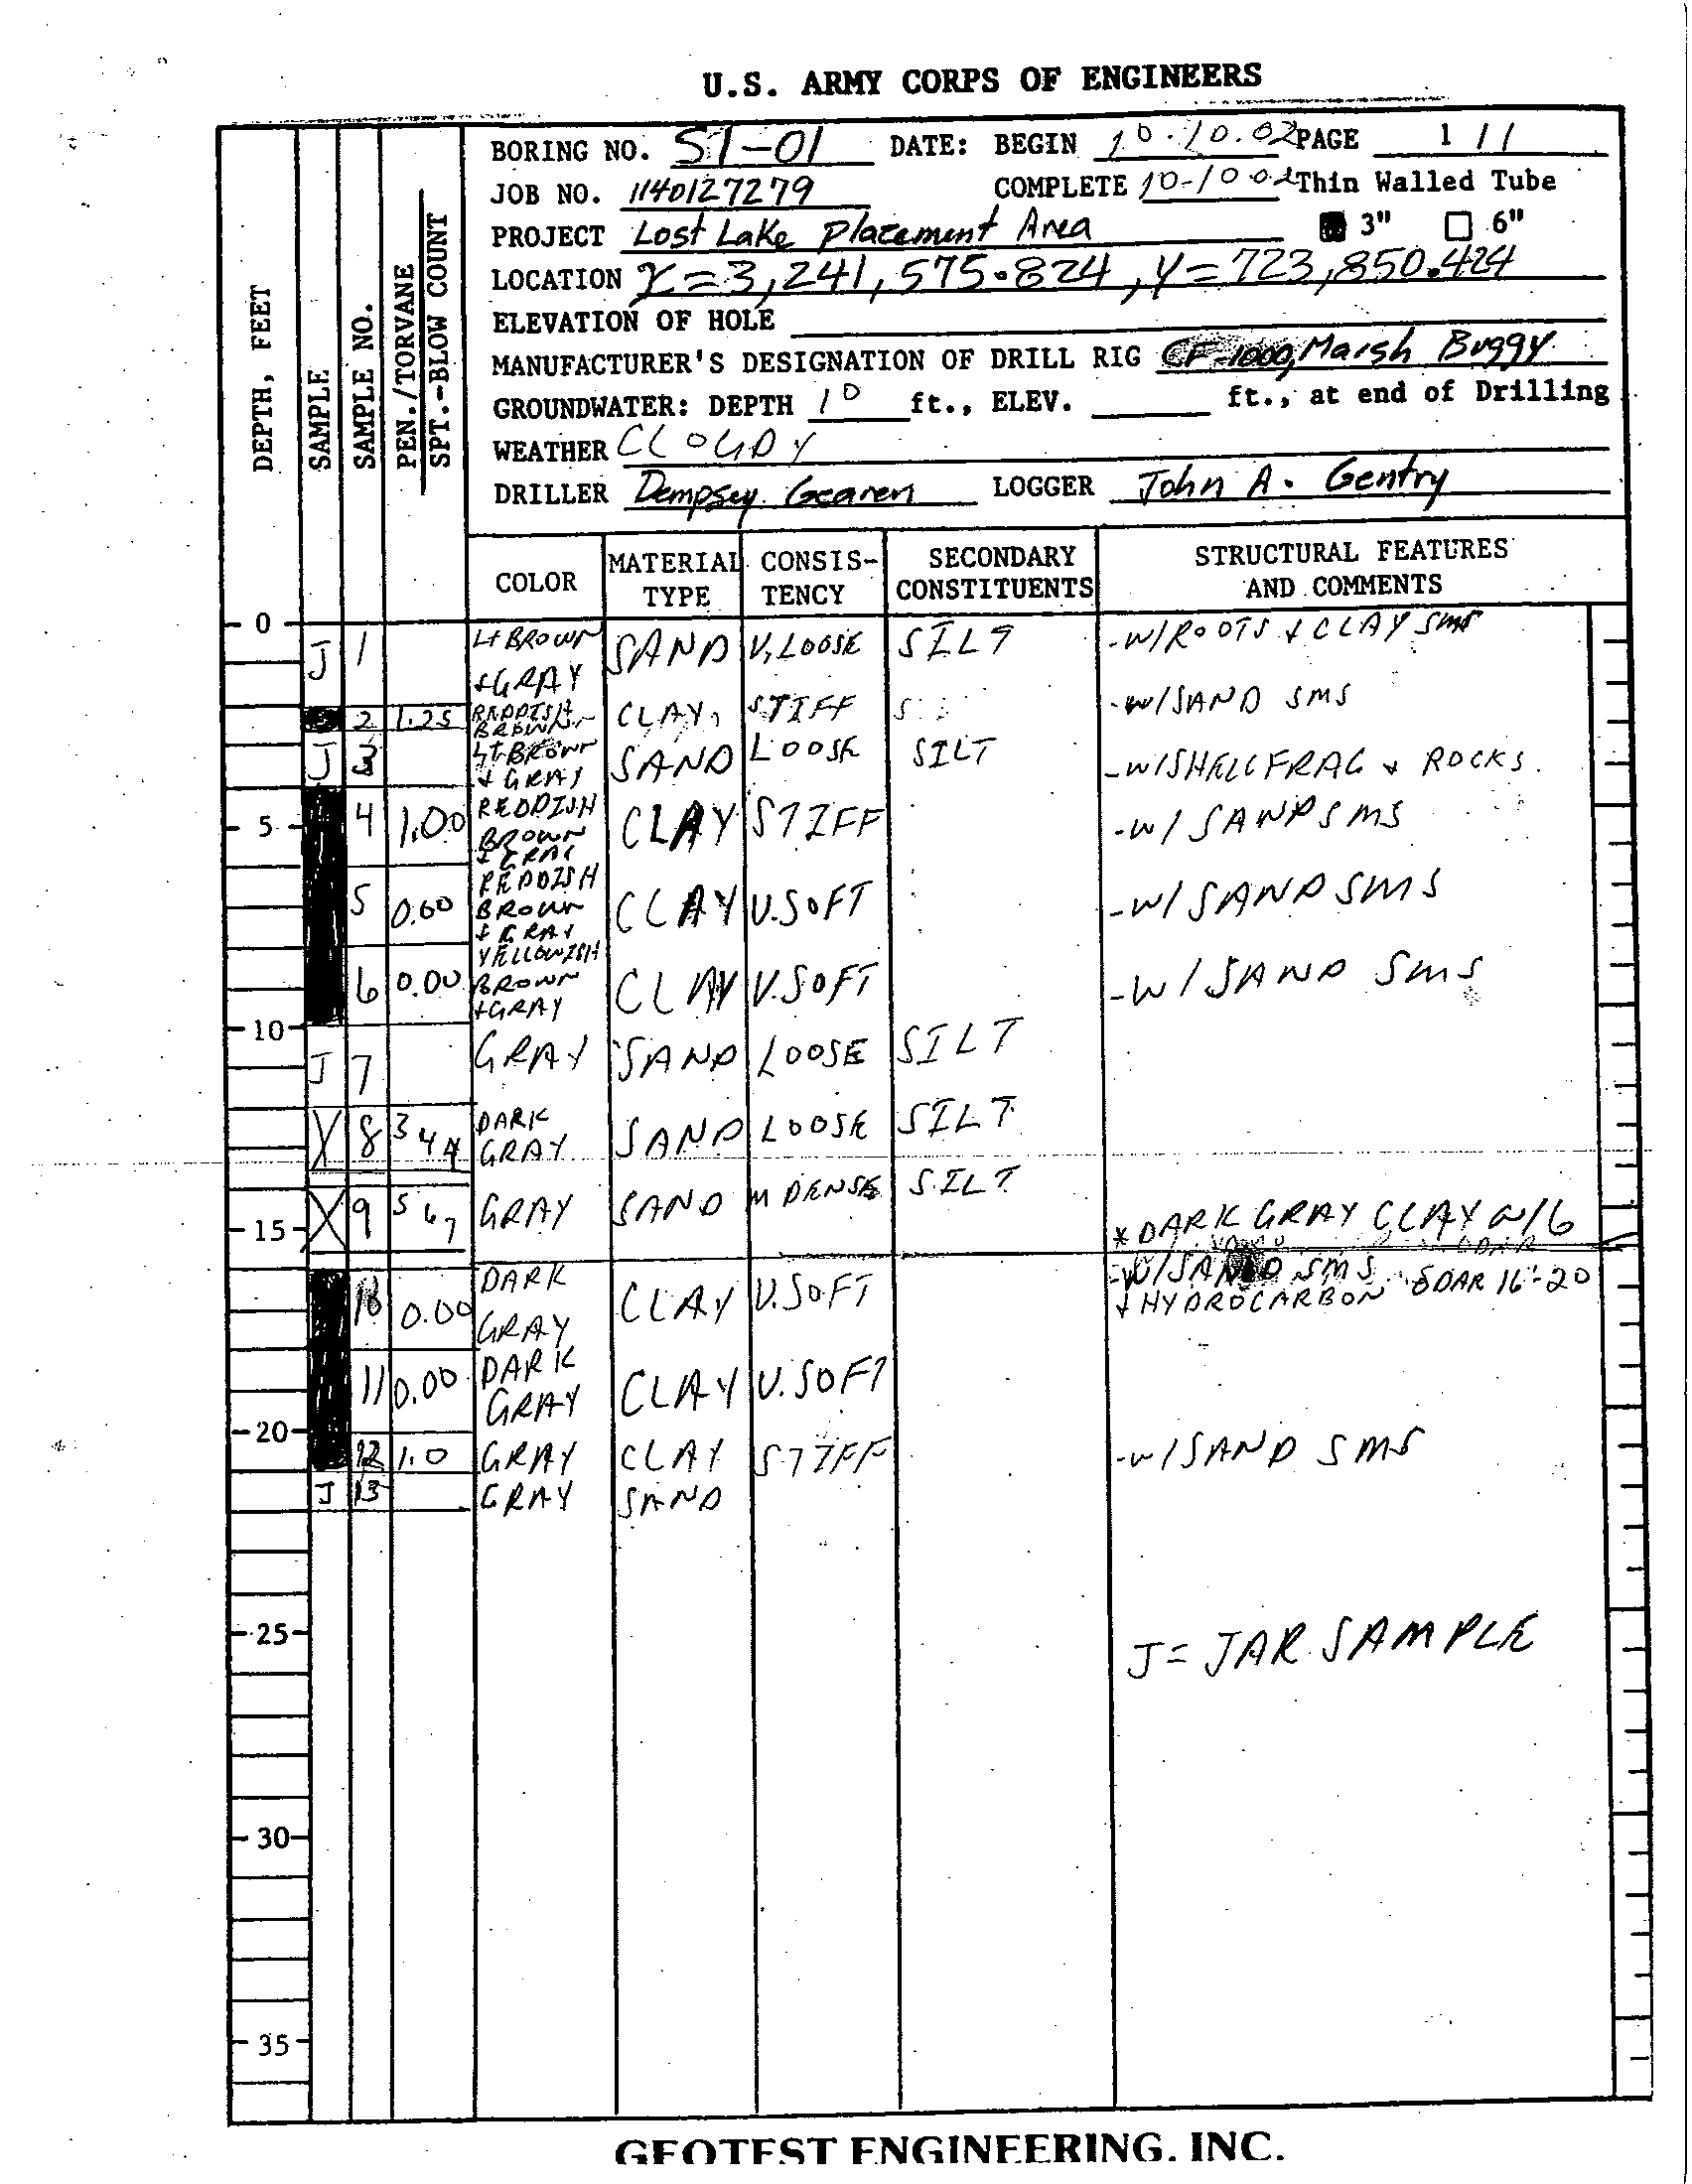 U.S. ARMY CORPS OF ENGINEERS
DEPTH, FEET
SAMPLE
SAMPLE NO.
PEN./TORVANE
SPT.-BLOW COUNT
BORING NO. ST-01 DATE: BEGIN 10.10.02 PAGE 1 / 1
JOB NO. 1140127279 COMPLETE 10-10-02 Thin Walled Tube
PROJECT Lost Lake Placement Area 3" 6"
LOCATION X=3,241,575.824, Y=723,850.424
ELEVATION OF HOLE
MANUFACTURER'S DESIGNATION OF DRILL RIG CF-1000, Marsh Buggy
GROUNDWATER: DEPTH 10 ft., ELEV. ft., at end of Drilling
WEATHER CLOUDY
DRILLER Dempsey Gearen LOGGER John A. Gentry
COLOR MATERIAL TYPE CONSIS-TENCY SECONDARY CONSTITUENTS STRUCTURAL FEATURES AND COMMENTS
0
J 1 LT BROWN & GRAY SAND V, LOOSE SILT -W/ROOTS & CLAY SMS
2 1.25 REDDISH BROWN CLAY, STIFF -W/SAND SMS
J 3 LT BROWN & GRAY SAND LOOSE SILT -W/SHELL FRAG & ROCKS.
5 4 1.00 REDDISH BROWN & GRAY CLAY STIFF -W/SAND SMS
5 0.00 REDDISH BROWN & GRAY CLAY V.SOFT -W/SAND SMS
6 0.00 YELLOWISH BROWN & GRAY CLAY V.SOFT -W/SAND SMS
10
J 7 GRAY SAND LOOSE SILT
X 8 3 4 4 DARK GRAY SAND LOOSE SILT
15 X 9 5 6 7 GRAY SAND M DENSE SILT * DARK GRAY CLAY @ 16
10 0.00 DARK GRAY CLAY V.SOFT -W/SAND SMS
& HYDROCARBON ODAR 16-20
11 0.00 DARK GRAY CLAY V.SOFT
20
12 1.0 GRAY CLAY STIFF -W/SAND SMS
J 13 GRAY SAND
25
J = JAR SAMPLE
30
35
GEOTEST ENGINEERING, INC.